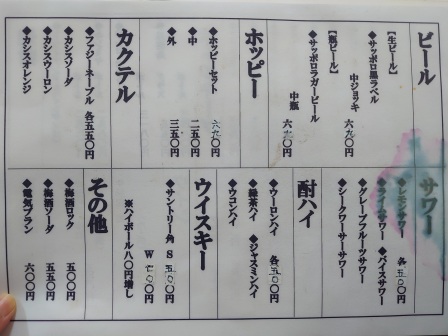 ビール
【生ビール】
◆サッポロ黒ラベル
中ジョッキ 六九〇円
【瓶ビール】
◆サッポロラガービール
中瓶 六九〇円
ホッピー
◆ホッピーセット 六九〇円
◆中 二五〇円
◆外 三五〇円
カクテル
◆ファジーネーブル 各五五〇円
◆カシスソーダ
◆カシスウーロン
◆カシスオレンジ
サワー
◆レモンサワー 各五五〇円
◆ライムサワー ◆バイスサワー
◆グレープフルーツサワー
◆シークワーサーサワー
酎ハイ
◆ウーロンハイ 各五五〇円
◆緑茶ハイ ◆ジャスミンハイ
◆ウコンハイ
ウイスキー
◆サントリー角 S 五五〇円
W 七〇〇円
※ハイボール八〇円増し
その他
◆梅酒ロック 五五〇円
◆梅酒ソーダ 五五〇円
◆電気ブラン 六〇〇円